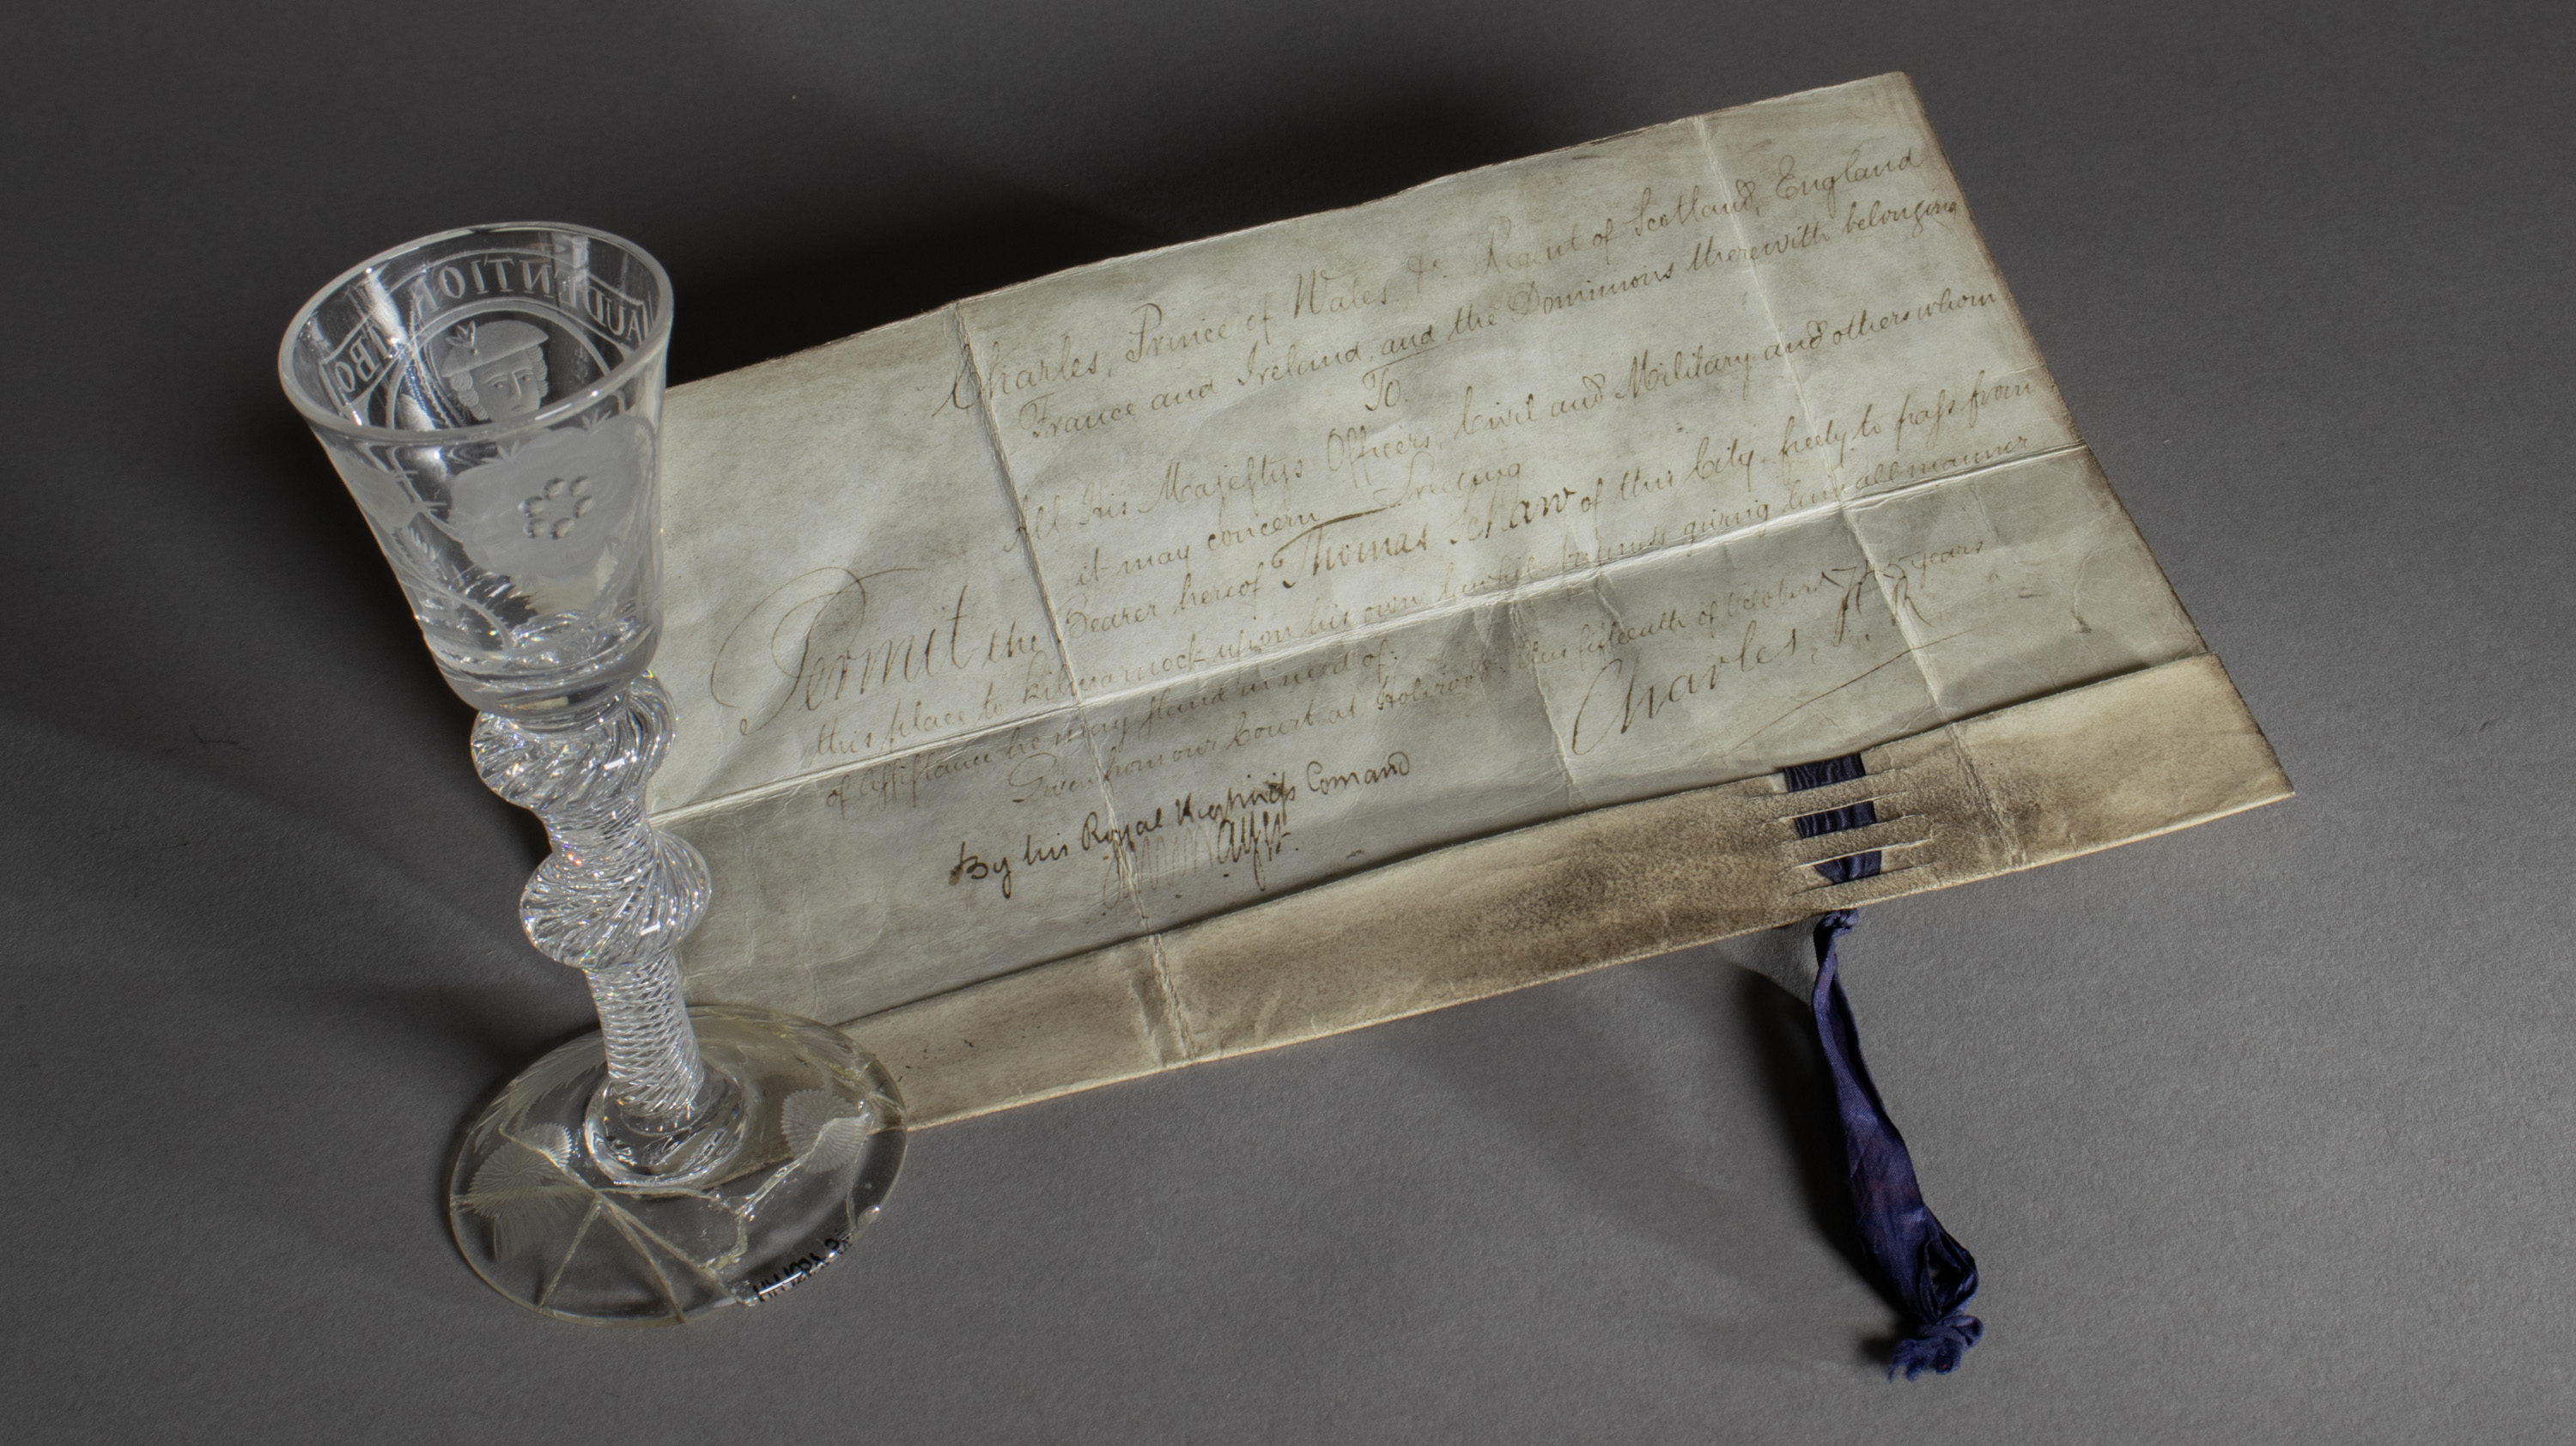 AUDENTIOR IBO
Charles, Prince of Wales &c. Regent of Scotland, England
France and Ireland, and the Dominions therewith belonging
To.
All His Majestys Officers, Civil and Military and others whom
it may concern Greeting
Permit the Bearer hereof Thomas Schaw of this City, freely to pass from
this place to Kilmarnock upon his own lawfull giving him all manner
of Assistance he may stand in need of.
Given from our Court at Holirood this fifteenth of October 45 years
Charles, P. R
By his Royal Highness Comand